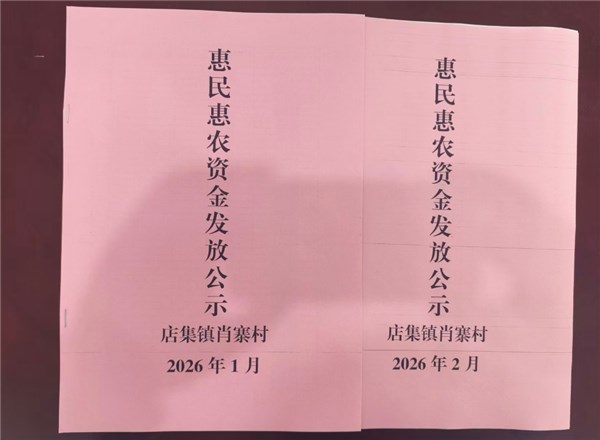 惠民惠农资金发放公示
店集镇肖寨村
2026年1月
惠民惠农资金发放公示
店集镇肖寨村
2026年2月